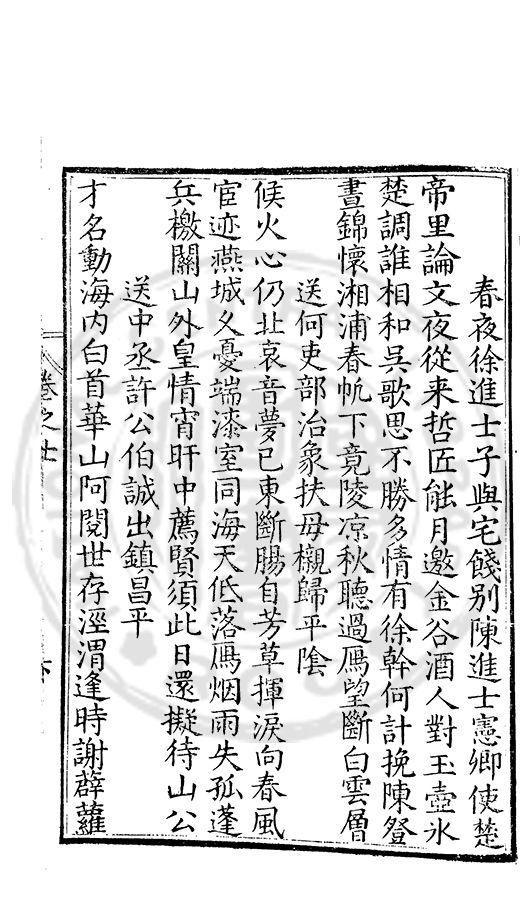 春夜徐進士子與宅餞别陳進士憲卿使楚
帝里論文夜從来哲匠能月邀金谷酒人對玉壺氷
楚調誰相和吳歌思不勝多情有徐幹何計挽陳登
晝錦懷湘浦春帆下竟陵凉秋聽過鴈望斷白雲層
送何吏部治象扶母櫬歸平隂
候火心仍北哀音夢已東斷腸自芳草揮淚向春風
宦迹燕城夂憂端漆室同海天低落鴈烟雨失孤蓬
兵檄關山外皇情宵旰中薦賢須此日還擬待山公
送中丞許公伯誠出鎮昌平
才名動海内白首華山阿閱世存涇渭逢時謝薜蘿
卷之十